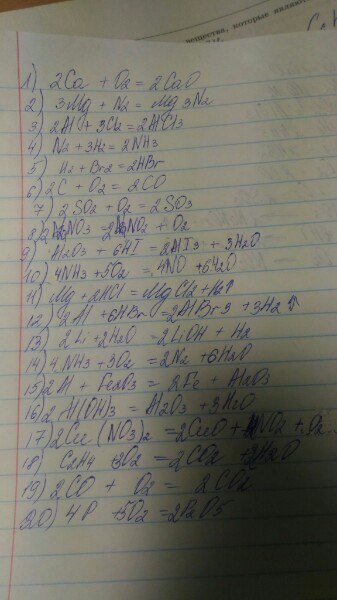 вещества, которые являют
1) 2Ca + O2 = 2CaO
2) 3Mg + N2 = Mg3N2
3) 2Al + 3Cl2 = 2AlCl3
4) N2 + 3H2 = 2NH3
5) H2 + Br2 = 2HBr
6) 2C + O2 = 2CO
7) 2SO2 + O2 = 2SO3
8) NO3 = NO2 + O2
9) Al2O3 + 6HI = 2AlI3 + 3H2O
10) 4NH3 + 5O2 = 4NO + 6H2O
11) Mg + 2HCl = MgCl2 + H2↑
12) 2Al + 6HBr = 2AlBr3 + 3H2↑
13) 2Li + 2H2O = 2LiOH + H2
14) 4NH3 + 3O2 = 2N2 + 6H2O
15) 2Al + Fe2O3 = 2Fe + Al2O3
16) 2Al(OH)3 = Al2O3 + 3H2O
17) 2Cu(NO3)2 = 2CuO + 4NO2 + O2
18) C2H4 + 3O2 = 2CO2 + 2H2O
19) 2CO + O2 = 2CO2
20) 4P + 5O2 = 2P2O5